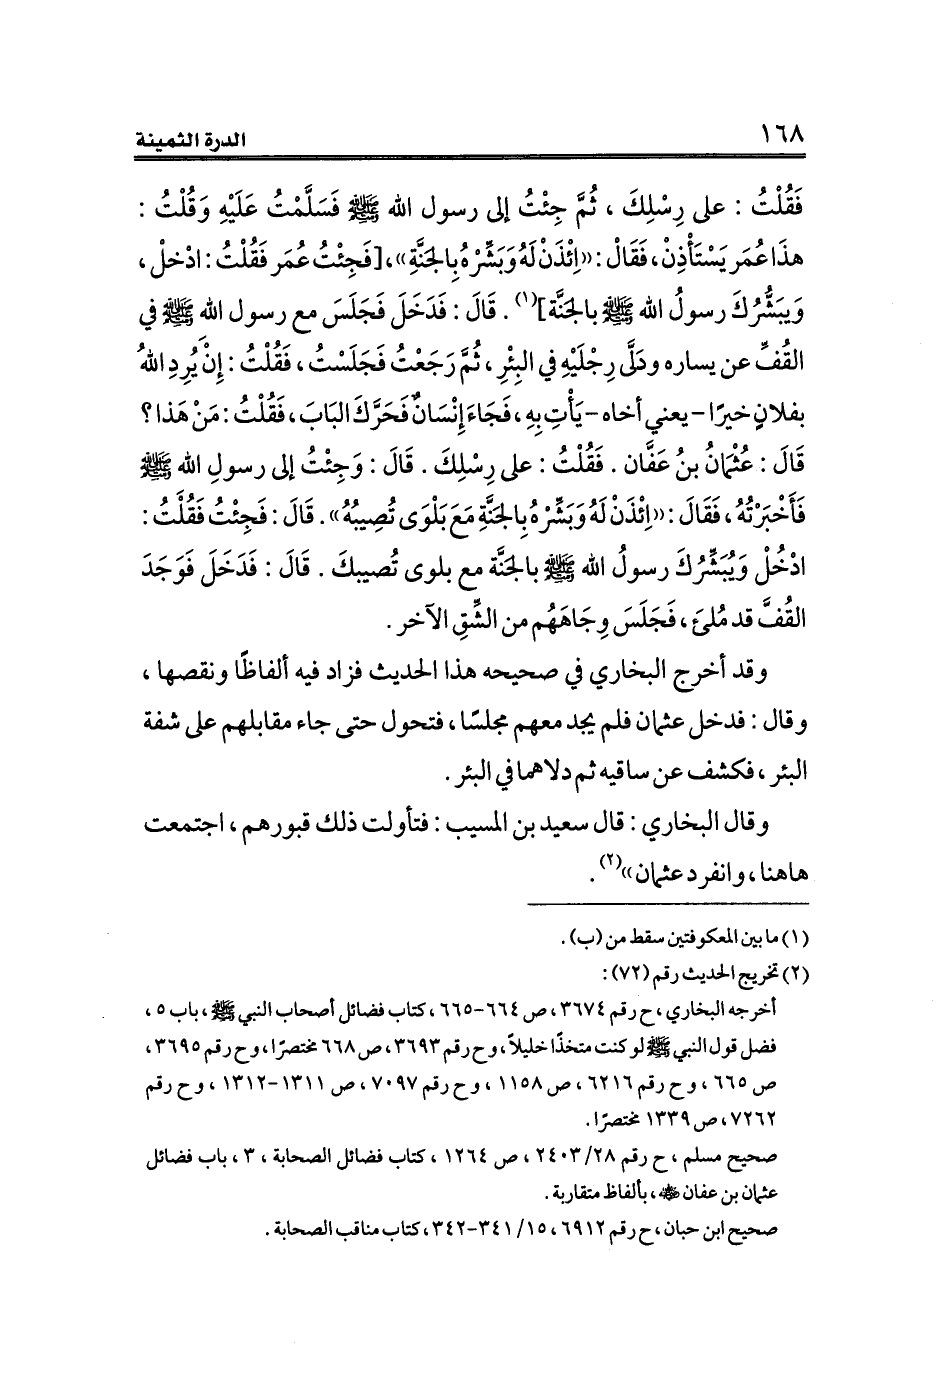 ١٦٨
الدرة الثمينة
فَقُلْتُ : على رِسْلِكَ ، ثُمَّ جِئْتُ إلى رسول الله ﷺ فَسَلَّمْتُ عَلَيْهِ وَقُلْتُ :
هذَا عُمَر يَسْتَأْذِنْ، فَقَالْ : «اِئْذَنْ لَهُ وَبَشِّرْهُ بِالجَنَّةِ»، [فَجِئْتُ عُمَر فَقُلْتُ: ادْخلْ ،
وَيَبَشُّرُكَ رسولُ الله ﷺ بالجَنَّة](١) . قَالَ : فَدَخَلَ فَجَلَسَ مع رسول الله ﷺ في
القُفِّ عن يساره ودَلَّى رِجْلَيْهِ في البِئْرِ ، ثُمَّ رَجَعْتُ فَجَلَسْتُ ، فَقُلْتُ : إِنْ يُرِدِ اللهُ
بفلانٍ خيرًا - يعني أخاه - يَأْتِ بِهِ ، فَجَاءَ إِنْسَانٌ فَحَرَّكَ البَابَ ، فَقُلْتُ : مَنْ هَذا ؟
قَالَ : عُثْمَانُ بنُ عَفَّان . فَقُلْتُ : على رِسْلِكَ . قَالَ : وَجِئْتُ إلى رسولِ الله ﷺ
فَأَخْبَرْتُهُ ، فَقَالَ : «اِئْذَنْ لَهُ وَبَشِّرْهُ بِالجَنَّةِ مَعَ بَلْوَى تُصِيبُهُ» . قَالَ : فَجِئْتُ فَقُلْتُ :
ادْخُلْ وَيُبَشِّرُكَ رسولُ الله ﷺ بالجَنَّة مع بلوى تُصيبكَ . قَالَ : فَدَخَلَ فَوَجَدَ
القُفَّ قد مُلئَ ، فَجَلَسَ وِجَاهَهُم من الشِّقِ الآخر .
وقد أخرج البخاري في صحيحه هذا الحديث فزاد فيه ألفاظًا ونقصها ،
وقال : فدخل عثمان فلم يجد معهم مجلسًا ، فتحول حتى جاء مقابلهم على شفة
البئر ، فكشف عن ساقيه ثم دلاهما في البئر .
وقال البخاري : قال سعيد بن المسيب : فتأولت ذلك قبورهم ، اجتمعت
هاهنا ، وانفرد عثمان»(٢) .
(١) ما بين المعكوفتين سقط من (ب) .
(٢) تخريج الحديث رقم (٧٢) :
أخرجه البخاري ، ح رقم ٣٦٧٤ ، ص ٦٦٤-٦٦٥ ، كتاب فضائل أصحاب النبي ﷺ ، باب ٥ ،
فضل قول النبي ﷺ لو كنت متخذًا خليلاً ، وح رقم ٣٦٩٣ ، ص ٦٦٨ مختصرًا ، وح رقم ٣٦٩٥ ،
ص ٦٦٥ ، وح رقم ٦٢١٦ ، ص ١١٥٨ ، وح رقم ٧٠٩٧ ، ص ١٣١١-١٣١٢ ، وح رقم
٧٢٦٢ ، ص ١٣٣٩ مختصرًا .
صحيح مسلم ، ح رقم ٢٤٠٣/٢٨ ، ص ١٢٦٤ ، كتاب فضائل الصحابة ، ٣ ، باب فضائل
عثمان بن عفان ﵁ ، بألفاظ متقاربة .
صحيح ابن حبان ، ح رقم ٦٩١٢ ، ١٥/ ٣٤١-٣٤٢ ، كتاب مناقب الصحابة .